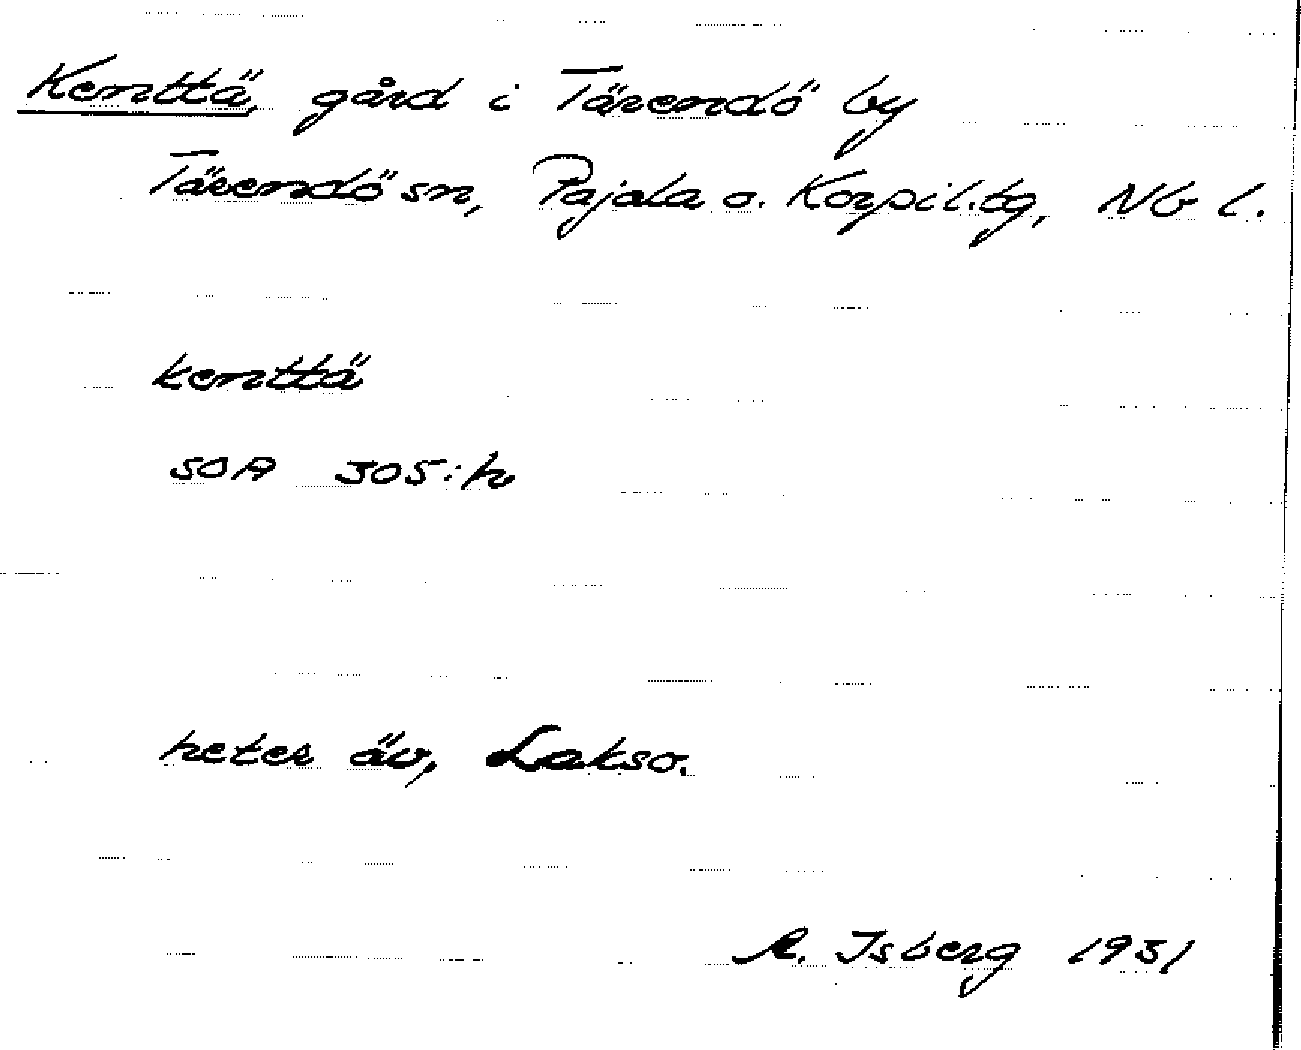 Kenttä, gård i Tärendö by
Tärendö sn, Pajala o. Korpil.tg, Nb l.
kenttä
SOA 305:h
heter äv, Lakso.
A. Isberg 1931